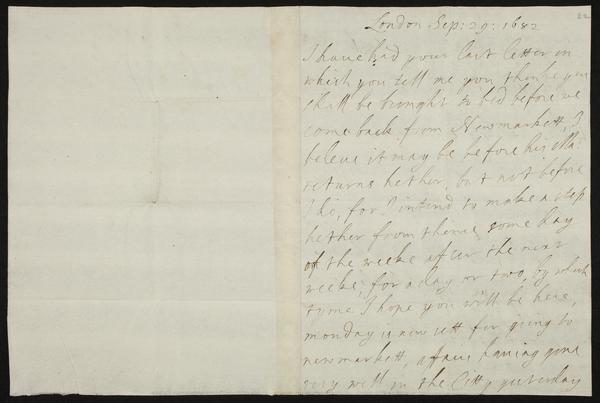 22
London Sep: 29: 1682
I have had your last letter in
which you tell me you thinke you
shall be brought to bed before we
come back from Newmarkett, I
beleve it may be before his Ma:
returns hether, but not before
I do, for I intend to make a step
hether from thence some day
of the weeke after the next
weeke, for a day or two, by which
tyme I hope you will be here,
monday is now sett for going to
newmarkett, affairs having gone
very well in the Citty yesterday